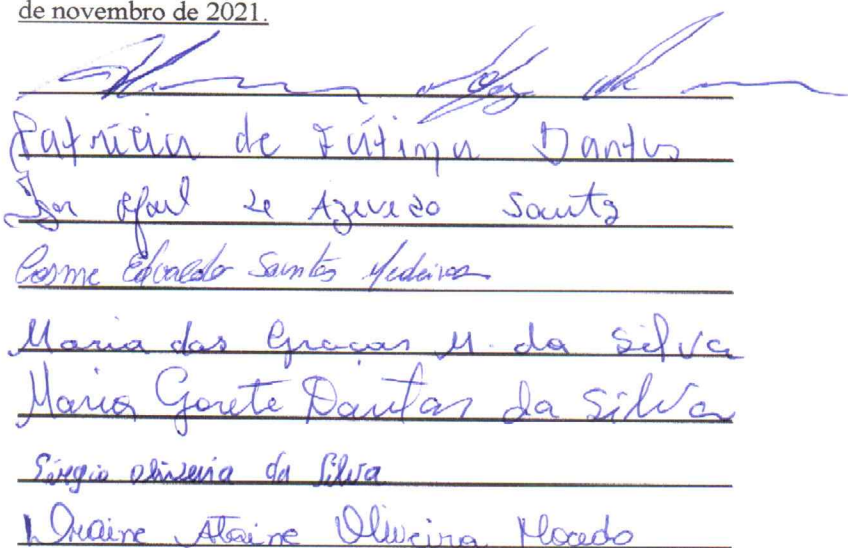 de novembro de 2021.
Patrícia de Fátima Dantas
de Azevedo Santos
Cosme Edvaldo Santos Medeiros
Maria das Graças M. da Silva
Maria Gorete Dantas da Silva
Sérgio Oliveira da Silva
Oliveira Macedo